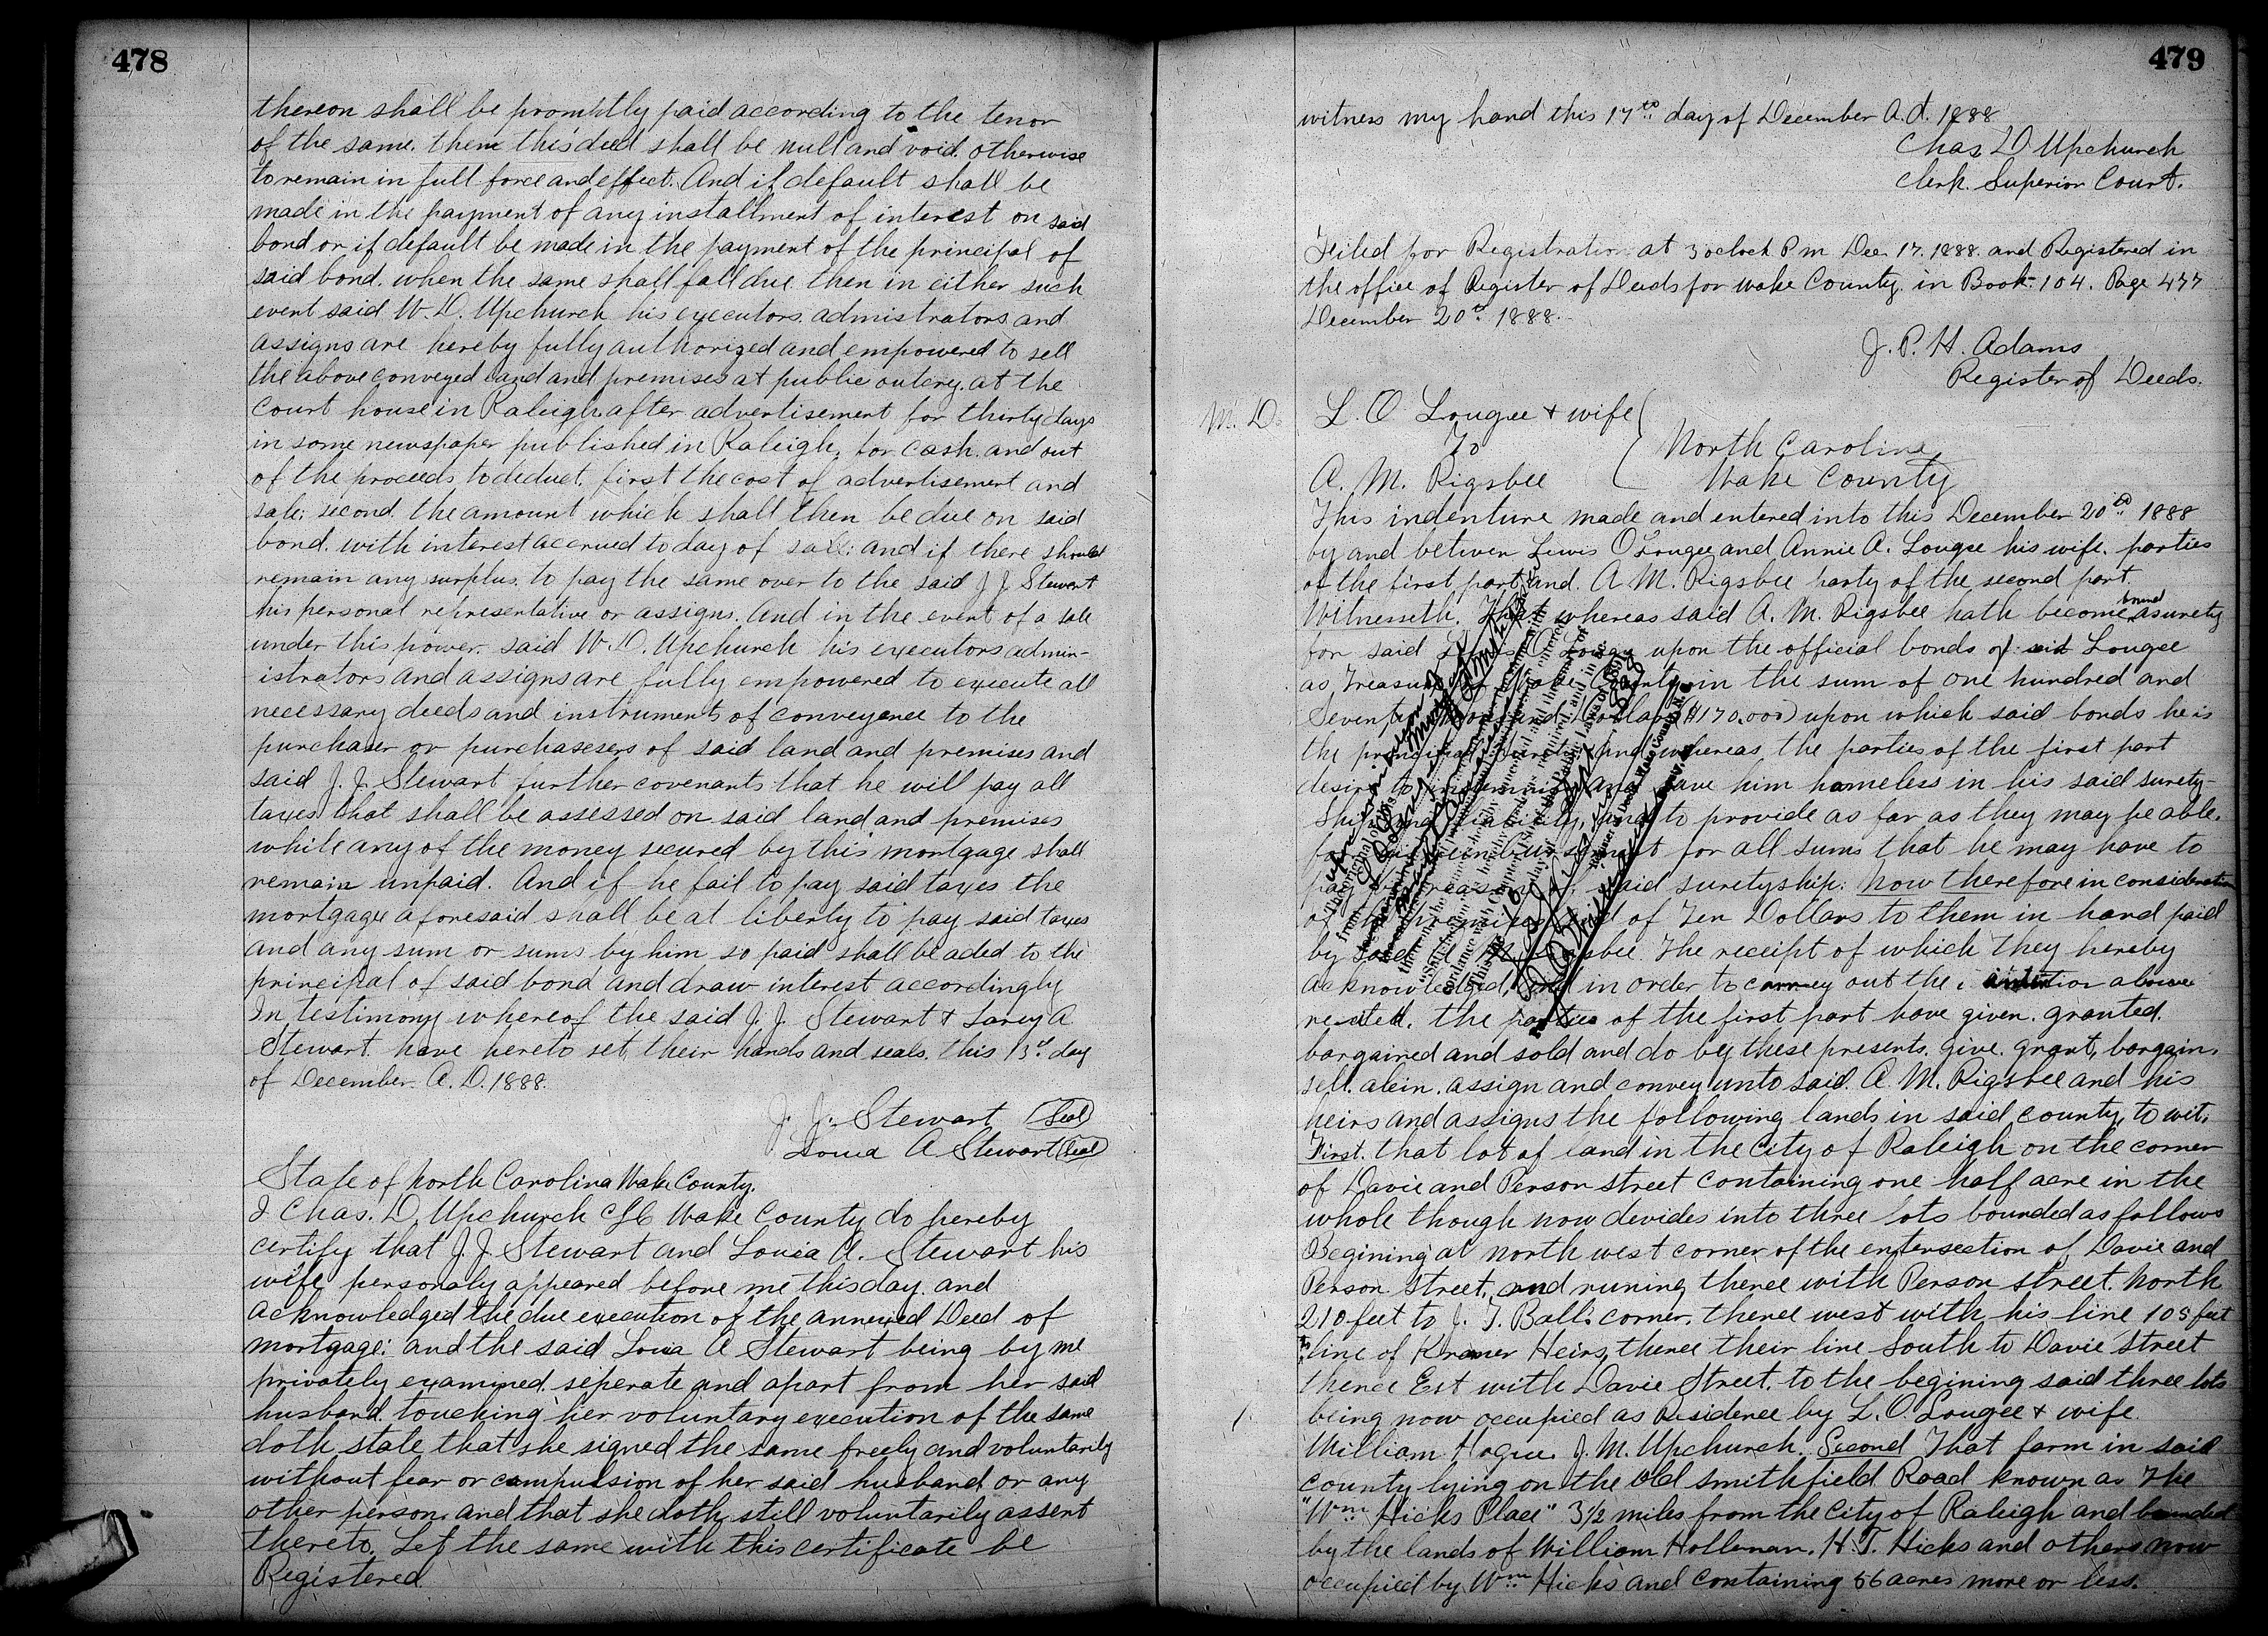 478
thereon shall be promptly paid according to the tenor
of the same. then this deed shall be null and void. otherwise
to remain in full force and effect. And if default shall be
made in the payment of any installment of interest on said
bond or if default be made in the payment of the principal of
said bond. when the same shall fall due then in either such
event said W. D. Upchurch his executors. admistrators and
assigns are hereby fully authorized and empowered to sell
the above conveyed land and premises at public outcry. at the
Court house in Raleigh after advertisement for thirty days
in some newspaper published in Raleigh, for cash. and out
of the proceeds to deduct. first the cost of advertisement and
sale; second. the amount which shall then be due on said
bond. with interest accrued to day of sale; and if there should
remain any surplus. to pay the same over to the said J J Stewart
his personal representative or assigns. And in the event of a sale
under this power. said W. D. Upchurch his executors admin-
istrators and assigns are fully empowered to execute all
necessary deeds and instruments of conveyence to the
purchaser or purchasesers of said land and premises and
said J. J. Stewart further covenants that he will pay all
taxes that shall be assessed on said land and premises
while any of the money secured by this mortgage shall
remain unpaid. And if he fail to pay said taxes the
mortgagee aforesaid shall be at liberty to pay said taxes
and any sum or sums by him so paid shall be aded to the
principal of said bond and draw interest accordingly
In testimony whereof the said J. J. Stewart + Lou A
Stewart. have hereto set, their hands and seals. this 13d day
of December. A. D. 1888.
J. J. Stewart (Seal)
Louia A Stewart (Seal)
State of North Carolina Wake County.
I Chas. D. Upchurch CSC Wake County do hereby
certify that J. J. Stewart and Louia A. Stewart his
wife personaly appeared before me this day. and
acknowledged the due execution of the annexed Deed of
mortgage: and the said Louia A Stewart being by me
privately examined. seperate and apart from her said
husband. touching her voluntary execution of the same
doth state that she signed the same freely and voluntarily
without fear or compulsion of her said husband or any
other person. and that she doth still voluntarily assent
thereto. Let the same with this certificate be
Registered.
479
witness my hand this 17th day of December A. d. 1888
Chas D Upchurch
Clerk. Superior Court.
Filed for Registration at 3 oclock P m Dec. 17. 1888. and Registered in
the office of Register of Deeds for Wake County. in Book 104. Page 477
December 20th 1888.
J. P. H. Adams
Register of Deeds.
M. D.
L. O Lougee + wife
To
A. M. Rigsbee
North Carolina
Wake County
This indenture made and entered into this December 20th 1888
by and betwen Lewis O Lougee and Annie A. Lougee his wife. parties
of the first part and. A M. Rigsbee party of the second part.
Witnesseth. That whereas said A. M. Rigsbee hath become bound as surety
for said Lewis O Lougee upon the official bonds of said Lougee
as Treasurer of Wake County in the sum of one hundred and
Seventy thousand Dollars ($170.000) upon which said bonds he is
the principal surety and whereas the parties of the first part
desire to indemnify and save him hameless in his said surety-
ship and liability, and to provide as far as they may be able.
for his reimbursement for all sums that he may have to
pay by reason of said suretyship: Now therefore in consideration
of the premises and of Ten Dollars to them in hand paid
by said A M Rigsbee. The receipt of which they hereby
acknowledged, and in order to carry out the intention above
recited. the parties of the first part have given. granted.
bargained and sold and do by these presents. give. grant, bargain.
sell. alein. assign and convey unto said. A. M. Rigsbee and his
heirs and assigns the following lands in said county, to wit.
First. that lot of land in the City of Raleigh on the corner
of Davie and Person street containing one half acre in the
whole though now devides into three lots bounded as follows
Begining at north west corner of the entersection of Davie and
Person Street. and runing thence with Person street. North
210 feet to J. T. Ball's corner. thence west with his line 105 feet
line of Kramer Heirs, thence their line South to Davie Street
thence Est with Davie Street. to the begining said three lots
being now occupied as Residence by L. O Lougee + wife.
William Hogue. J. M. Upchurch. Second That farm in said
county lying on the old Smithfield Road known as The
"Wm Hicks Place" 3½ miles from the City of Raleigh and bounded
by the lands of William Holleman. H. T. Hicks and others now
occupied by Wm Hicks and containing 56 acres more or less.